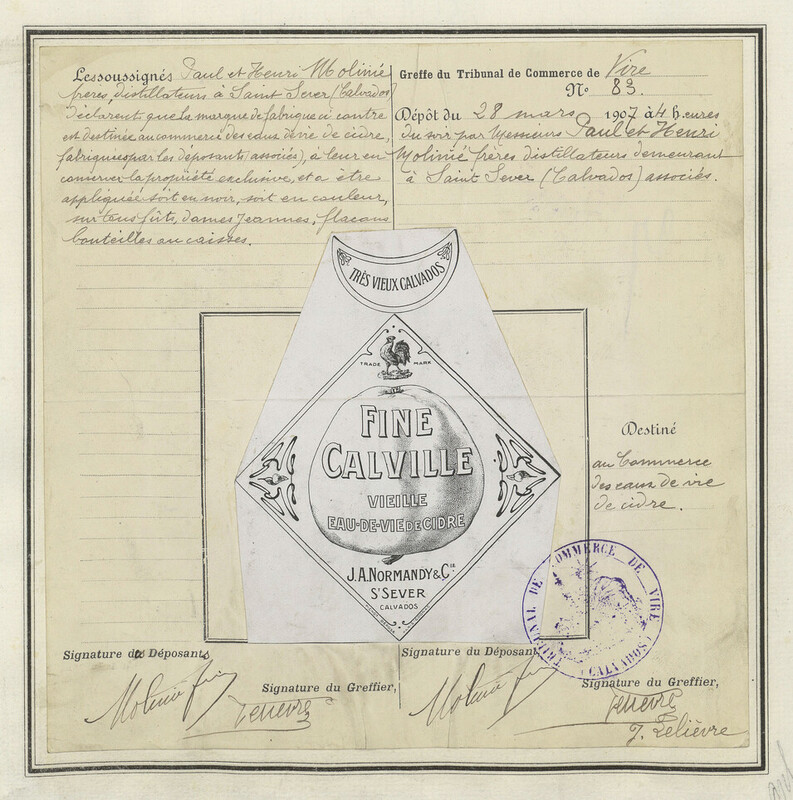 Les soussignés Paul et Henri Molinié
frères, distillateurs à Saint Sever (Calvados)
déclarent que la marque de fabrique ci contre
est destinée au commerce des eaux de vie de cidre,
fabriquées par les déposants (associés), à leur en
conserver la propriété exclusive, et a être
appliquée soit en noir, soit en couleur,
sur tous fûts, dames jeannes, flacons
bouteilles ou caisses.
Greffe du Tribunal de Commerce de Vire
No 83.
Dépôt du 28 mars 1907 à 4 heures
du soir par Messieurs Paul et Henri
Molinié frères distillateurs demeurant
à Saint Sever (Calvados) associés.
TRÈS VIEUX CALVADOS
TRADE MARK
FINE
CALVILLE
VIEILLE
EAU-DE-VIE DE CIDRE
J.A. NORMANDY & Cie
St SEVER
CALVADOS
Destiné
au Commerce
des eaux de vie
de cidre.
TRIBUNAL DE COMMERCE DE VIRE
(CALVADOS)
Signature des Déposants
Signature du Greffier,
Signature du Déposant
Signature du Greffier,
Molinié
Molinié
J. Lelièvre